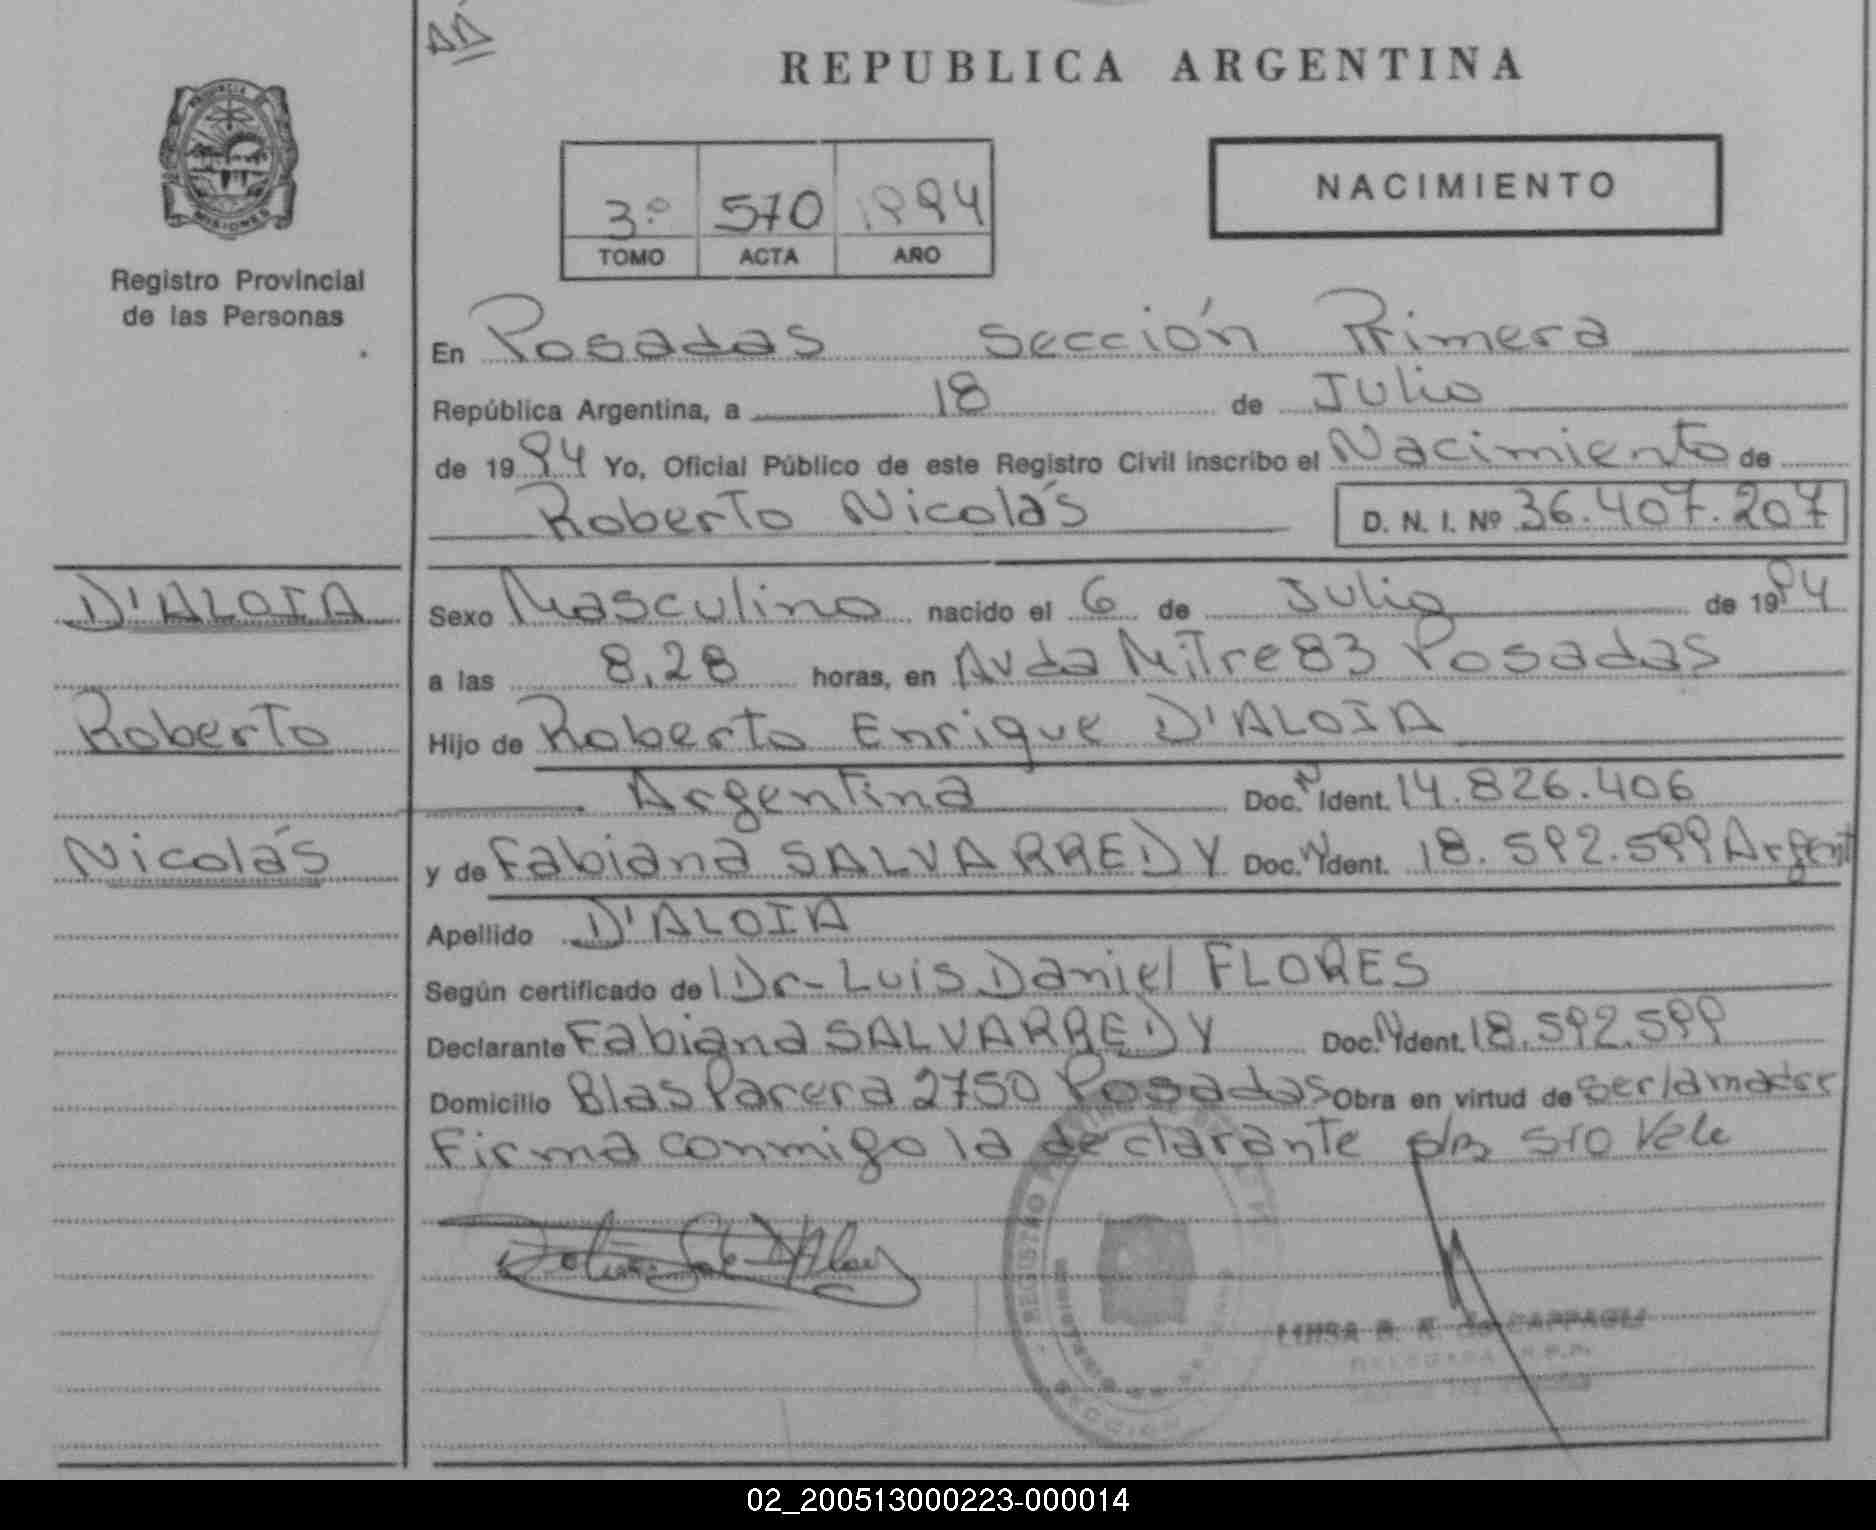 REPUBLICA ARGENTINA
PROVINCIA DE
MISIONES
Registro Provincial
de las Personas
3º 570 1994
TOMO ACTA AÑO
NACIMIENTO
En Posadas Sección Primera
República Argentina, a 18 de Julio
de 1994 Yo, Oficial Público de este Registro Civil inscribo el Nacimiento de
Roberto Nicolás D. N. I. Nº 36.407.207
D'ALOIA Sexo Masculino nacido el 6 de Julio de 1994
a las 8,28 horas, en Avda Mitre 83 Posadas
Roberto Hijo de Roberto Enrique D'ALOIA
Argentina Doc. N Ident. 14.826.406
Nicolás y de Fabiana SALVARREDY Doc. N Ident. 18.592.599 Argent
Apellido D'ALOIA
Según certificado de Dr- Luis Daniel FLORES
Declarante Fabiana SALVARREDY Doc. N Ident. 18.592.599
Domicilio Blas Parera 2750 Posadas Obra en virtud de ser la madre
Firma conmigo la declarante s/r s/o Vele
REGISTRO
SECCION
LUISA B. R. de CAPPAGLI
DELEGADA R.P.P.
02_200513000223-000014